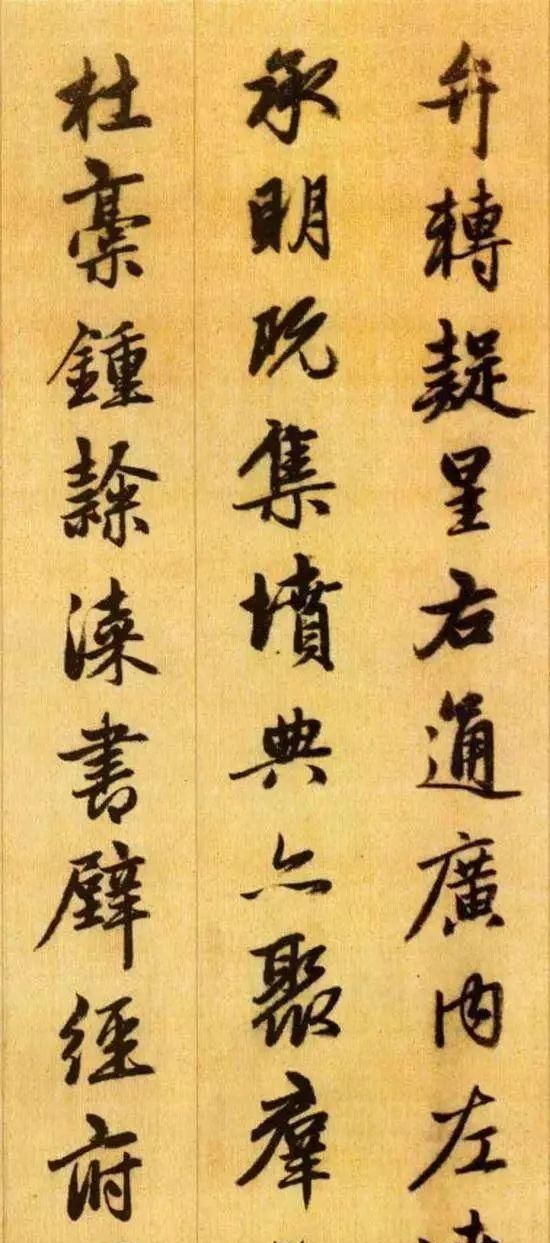 弁轉疑星右通廣內左
承明既集墳典亦聚群
杜稾鍾隸漆書壁經府